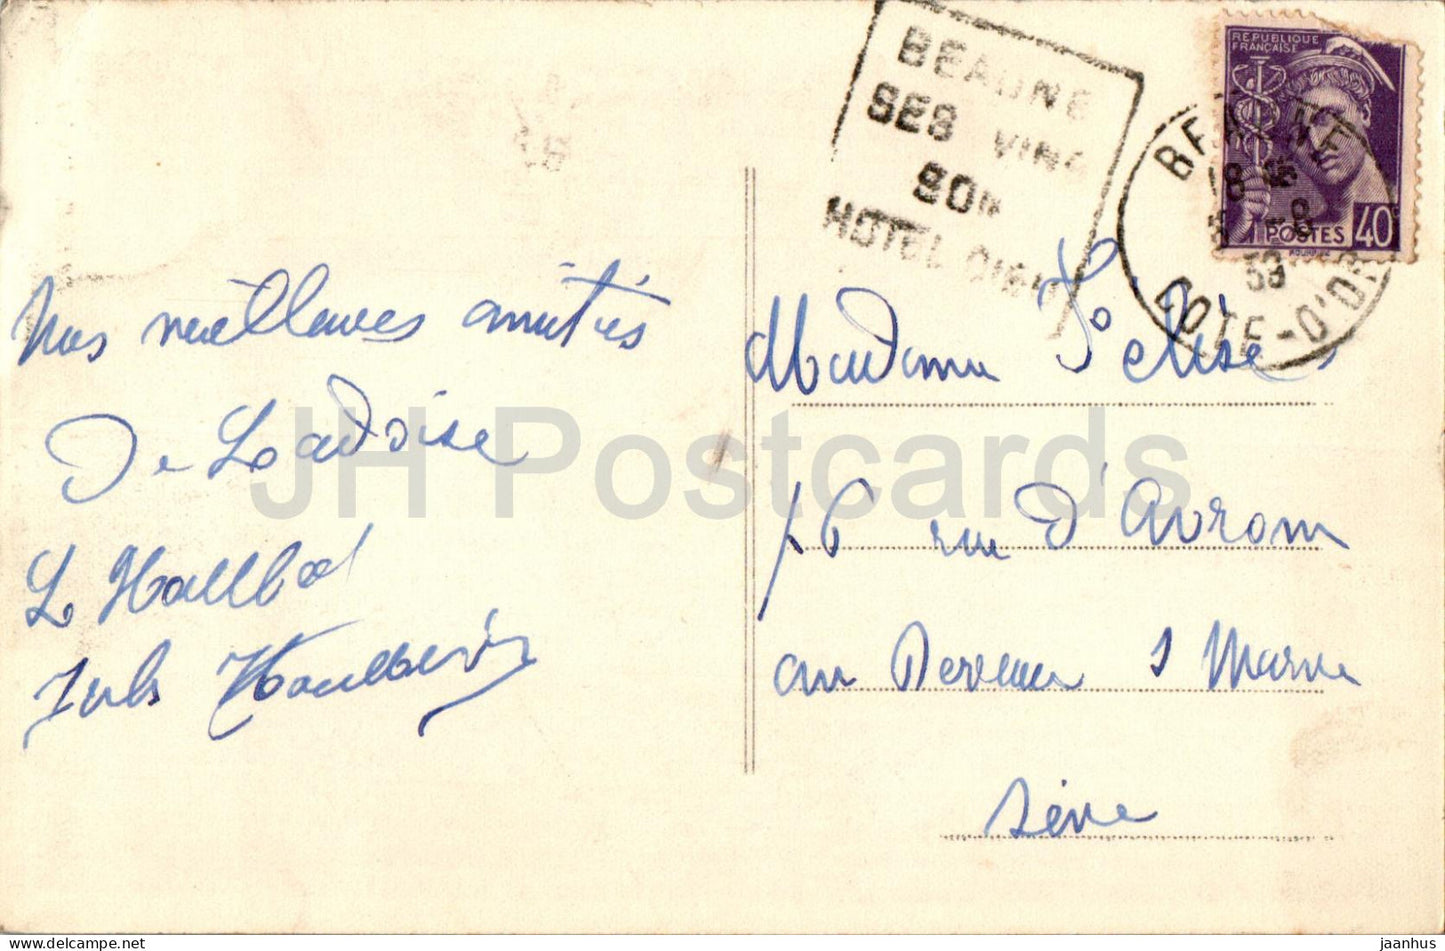 BEAUNE
SES VINS
SON
HOTEL DIEU
REPUBLIQUE
FRANÇAISE
POSTES 40
BEAUNE
18
8
39
COTE-D'OR
Nos meilleures amitiés
De
L
Jules
Madame
rue d'Avrom
au Perreux s Marne
Seine
JH Postcards
www.delcampe.net
jaanhus